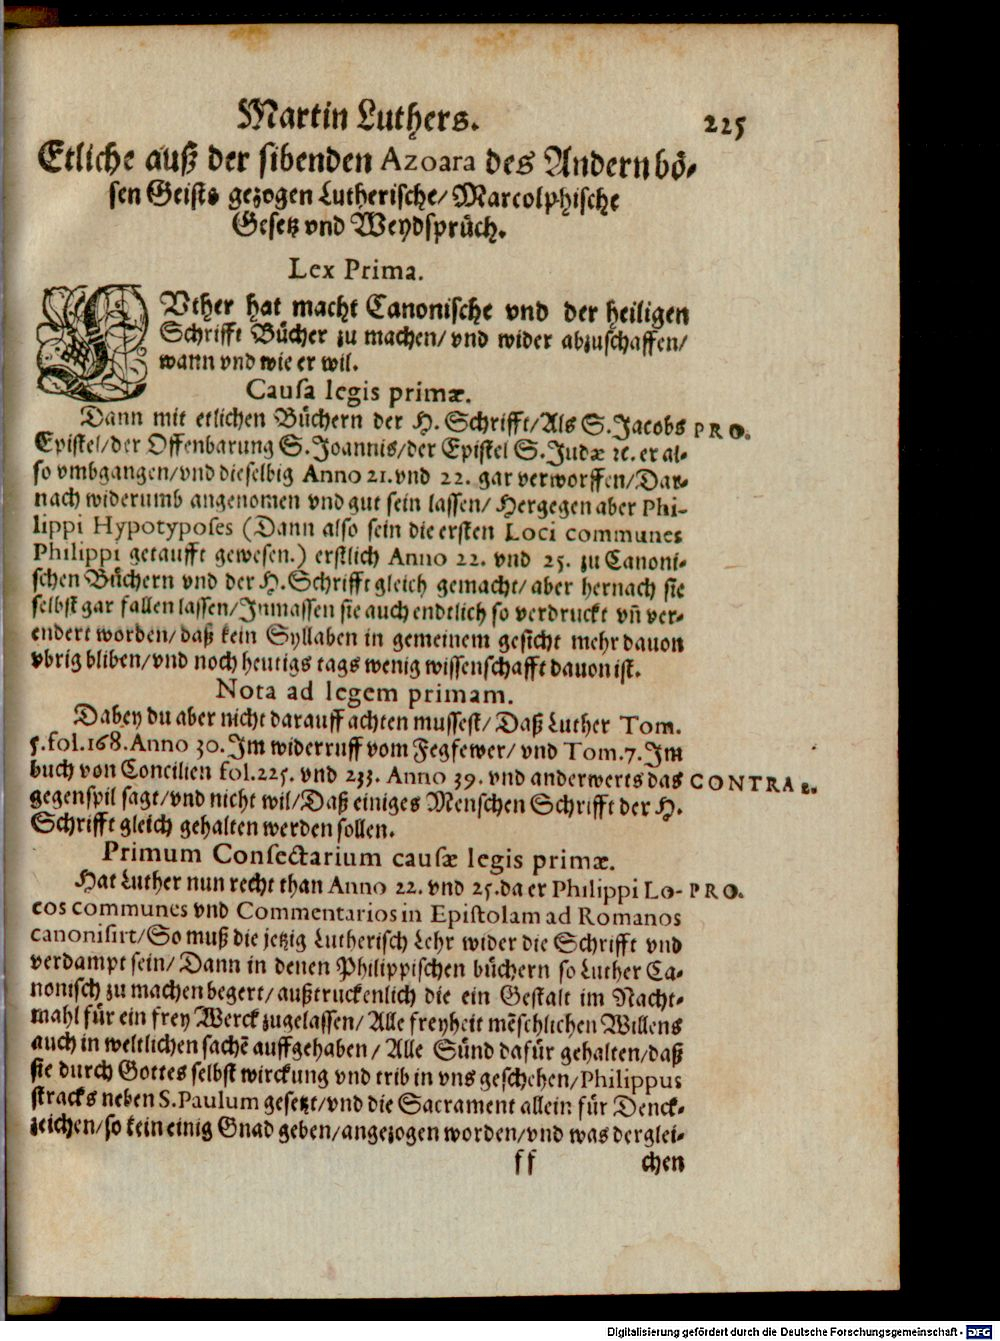 Martin Luthers. 225
Etliche auß der sibenden Azoara des Andern bö-
sen Geists gezogen Lutherische/ Marcolphische
Gesetz vnd Weydsprüch.
Lex Prima.
LVther hat macht Canonische vnd der heiligen
Schrifft Bücher zu machen/ vnd wider abzuschaffen/
wann vnd wie er wil.
Causa legis primæ.
Dann mit etlichen Büchern der H. Schrifft/ Als S. Jacobs PRO.
Epistel/ der Offenbarung S. Joannis/ der Epistel S. Judæ ꝛc. er al-
so vmbgangen/ vnd dieselbig Anno 21. vnd 22. gar verworffen/ Dar-
nach widerumb angenomen vnd gut sein lassen/ Hergegen aber Phi-
lippi Hypotyposes (Dann also sein die ersten Loci communes
Philippi getaufft gewesen.) erstlich Anno 22. vnd 25. zu Canoni-
schen Büchern vnd der H. Schrifft gleich gemacht/ aber hernach sie
selbst gar fallen lassen/ Inmassen sie auch endtlich so verdruckt vñ ver-
endert worden/ daß kein Syllaben in gemeinem gesicht mehr dauon
vbrig bliben/ vnd noch heutigs tags wenig wissenschafft dauon ist.
Nota ad legem primam.
Dabey du aber nicht darauff achten mussest/ Daß Luther Tom.
5. fol. 168. Anno 30. Im widerruff vom Fegfewer/ vnd Tom. 7. Im
buch von Concilien fol. 225. vnd 233. Anno 39. vnd anderwerts das CONTRA 2.
gegenspil sagt/ vnd nicht wil/ Daß einiges Menschen Schrifft der H.
Schrifft gleich gehalten werden sollen.
Primum Consectarium causæ legis primæ.
Hat Luther nun recht than Anno 22. vnd 25. da er Philippi Lo- PRO.
cos communes vnd Commentarios in Epistolam ad Romanos
canonisirt/ So muß die jetzig Lutherisch Lehr wider die Schrifft vnd
verdampt sein/ Dann in denen Philippischen büchern so Luther Ca-
nonisch zu machen begert/ außtruckenlich die ein Gestalt im Nacht-
mahl für ein frey Werck zugelassen/ Alle freyheit mēschlichen Willens
auch in weltlichen sachē auffgehaben/ Alle Sünd dafür gehalten/ daß
sie durch Gottes selbst wirckung vnd trib in vns geschehen/ Philippus
stracks neben S. Paulum gesetzt/ vnd die Sacrament allein für Denck-
zeichen/ so kein einig Gnad geben/ angezogen worden/ vnd was derglei-
ff chen
Digitalisierung gefördert durch die Deutsche Forschungsgemeinschaft - DFG